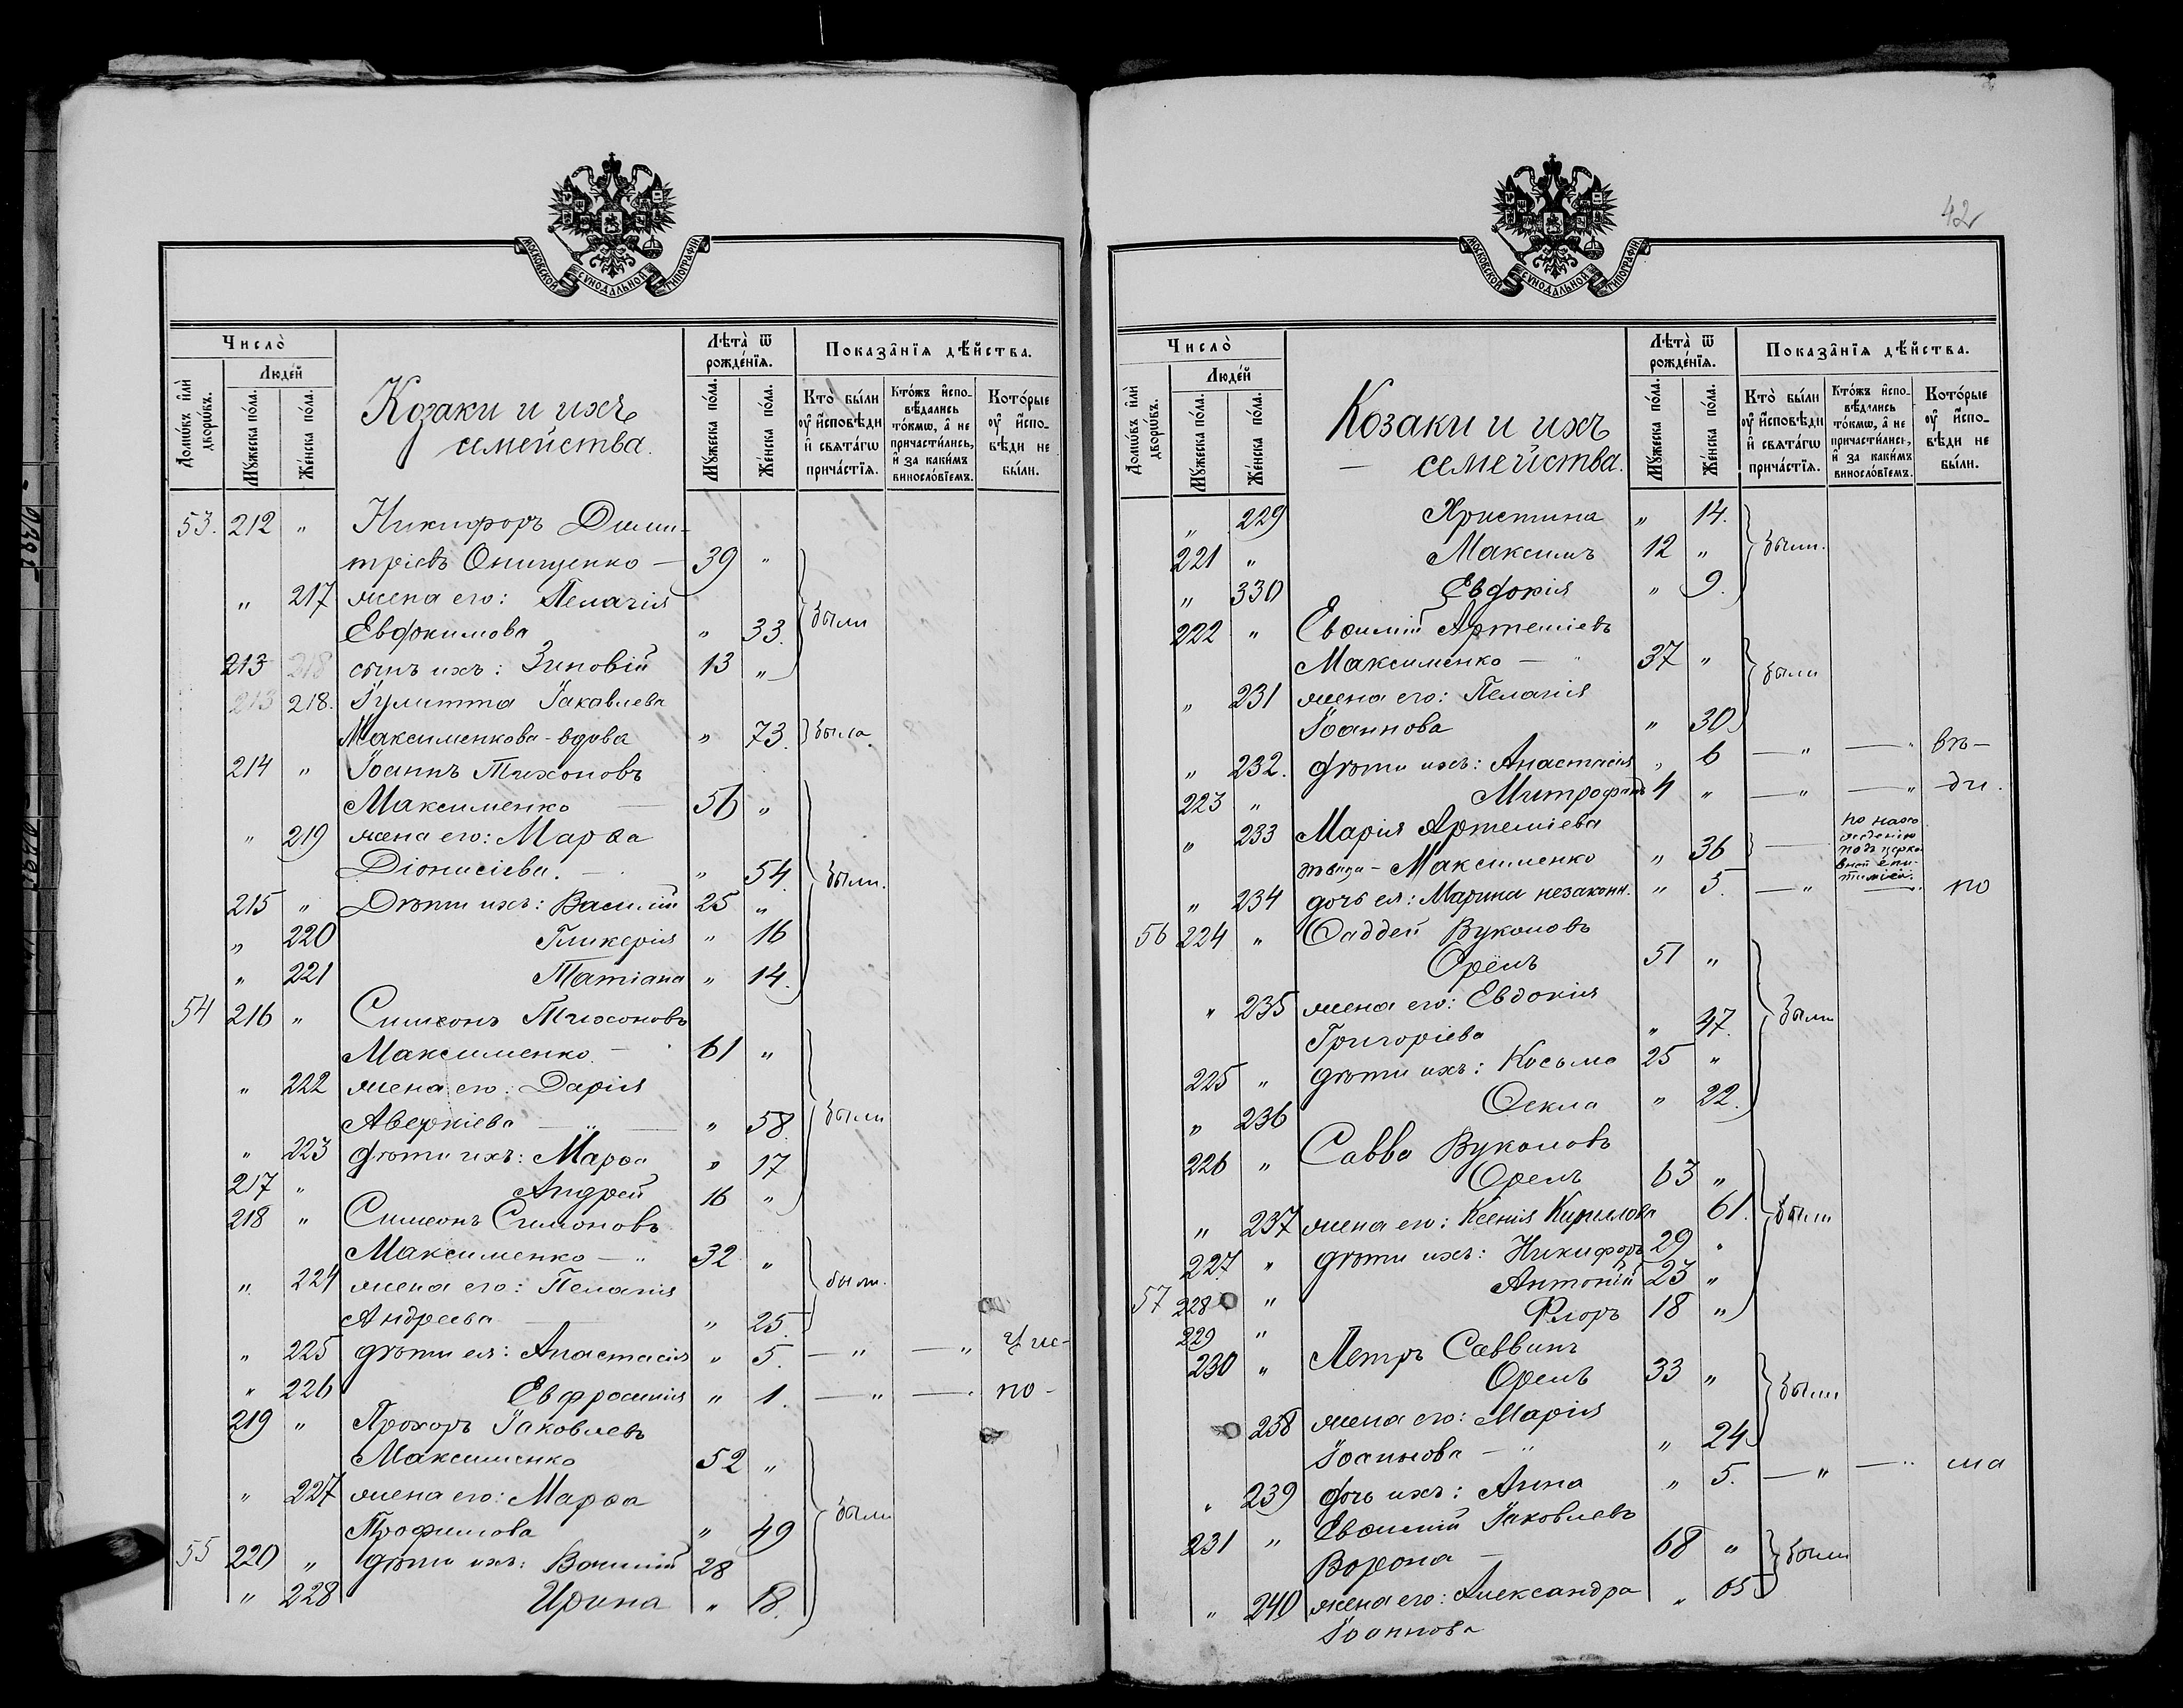 МОСКОВСКОЙ СѴНОДАЛЬНОЙ ТИПОГРАФІИ
Число̀
Домѡ́въ и҆лѝ дворѡ́въ.
Люде́й
Мꙋ́жеска по́ла.
Же́нска по́ла.
Козаки и ихъ
семейства.
Лѣ́та ѿ рожде́нїѧ.
Мꙋ́жеска по́ла.
Же́нска по́ла.
Показа̑нїѧ дѣ́йства.
Кто̀ бы́ли оу҆ и҆сповѣди и҆ свѧта́гѡ прича́стїѧ.
Кто́жъ и҆спо-вѣ́дались то́кмѡ, а҆ не причасти́лись, и҆ за каки́мъ винослѡ́вїемъ.
Кото́рые оу҆ и҆спо-вѣди не бы́ли.
53. 212 „ Никифоръ Дими-
трiевъ Онищенко — 39 „
„ 217 жена его: Пелагiя
Евдокимова „ 33. были
213 218 сынъ ихъ: Зиновiй 13 „
213 218. Iулитта Iаковлева
Максименкова - вдова „ 73. была
214 „ Iоаннъ Тихоновъ
Максименко — 56 „
„ 219 жена его: Марѳа
Дiонисiева. — „ 54. были.
215 „ Дѣти ихъ: Василiй 25 „
„ 220 Гликерiя „ 16
„ 221 Татiана „ 14.
54 216 „ Симеонъ Тихоновъ
Максименко. — 61 „
„ 222 жена его: Дарiя
Аверкiева — „ — „ 58. были
„ 223 дѣти ихъ: Марѳа „ 17
217 „ Андрей 16 „
218 „ Симеонъ Симоновъ
Максименко — „ 32 „
„ 224 жена его: Пелагiя были.
Андреева — „ 25.
„ 225 дѣти ея: Анастасiя „ 5. — „ — „
„ 226 Евфросинiя „ 1. — „ — „ по -
219 „ Прохоръ Iаковлевъ
Максименко 52 „
„ 227 жена его: Марѳа
Трофимова „ 49 были
55 220 „ дѣти ихъ: Василiй 28
„ 228 Ирина „ 18.
42
МОСКОВСКОЙ СѴНОДАЛЬНОЙ ТИПОГРАФІИ
Число̀
Домѡ́въ и҆лѝ дворѡ́въ.
Люде́й
Мꙋ́жеска по́ла.
Же́нска по́ла.
Козаки и ихъ
— семейства.
Лѣ́та ѿ рожде́нїѧ.
Мꙋ́жеска по́ла.
Же́нска по́ла.
Показа̑нїѧ дѣ́йства.
Кто̀ бы́ли оу҆ и҆сповѣди и҆ свѧта́гѡ прича́стїѧ.
Кто́жъ и҆спо-вѣ́дались то́кмѡ, а҆ не причасти́лись, и҆ за каки́мъ винослѡ́вїемъ.
Кото́рые оу҆ и҆спо-вѣди не бы́ли.
„ 229 Христина „ 14.
221 „ Максимъ 12 „ были.
„ 330 Евдокiя „ 9.
222 „ Евѳимiй Артемiевъ
Максименко — „ 37 „ были
„ 231 жена его: Пелагiя
Iоаннова „ 30
„ 232. дѣти ихъ: Анастасiя „ 6 — „ — „
223 „ Митрофанъ 4 „ — „ — „
„ 233 Марiя Артемiева по нахо
ждению
дѣвица - Максименко „ 36 — подъ церко
вной епи-
тимiей.
„ 234 дочь ея: Марина незаконн. „ 5. — „ — „ по
56 224 „ Ѳаддей Вуколовъ
Орёлъ 51 „
„ 235 жена его: Евдокiя
Григорiева „ 47. были
225 „ дѣти ихъ: Косьма 25 „
„ 236 Ѳекла „ 22.
226 „ Савва Вуколовъ
Орелъ 63 „
„ 237 жена его: Ксенiя Кириллова 61. были
227 „ дѣти ихъ: Никифоръ 29 „
57 228 „ Антонiй 23 „
229 „ Флоръ 18 „
230 „ Петръ Саввинъ
Орелъ 33 „ были
238 жена его: Марiя
Iоаннова — „ „ 24
„ 239 дочь ихъ: Анна „ 5. — „ — „ ма
231 „ Евѳимiй Iаковлевъ
Ворона — 68 „ были
„ 240 жена его: Александра „ 65
Iоаннова